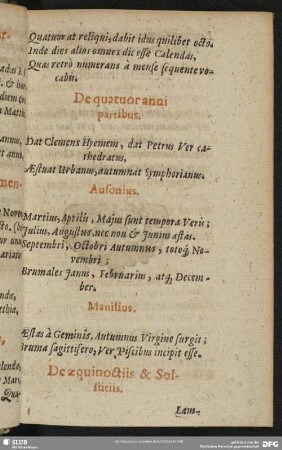 Quatuor at reliqui, dabit idus quilibet octo.
Inde dies alios omnes dic esse Calendas,
Quas retrò numerans à mense sequente vo-
cabis.
De quatuor anni
partibus.
Dat Clemens Hyemem, dat Petrus Ver ca-
thedratus,
Æstuat Urbanus, autumnat Symphorianus.
Ausonius.
Martius, Aprilis, Majus sunt tempora Veris;
Julius, Augustus nec non & Junius æstas.
Septembri, Octobri Autumnus, totoq; No-
vembri;
Brumales Janus, Februarius, atq; Decem-
ber.
Manilius.
Æstas à Geminis, Autumnus Virgine surgit;
Bruma sagittifero, Ver Piscibus incipit esse.
De æquinoctiis & Sol-
stitiis.
Lam-
SLUB
DFG